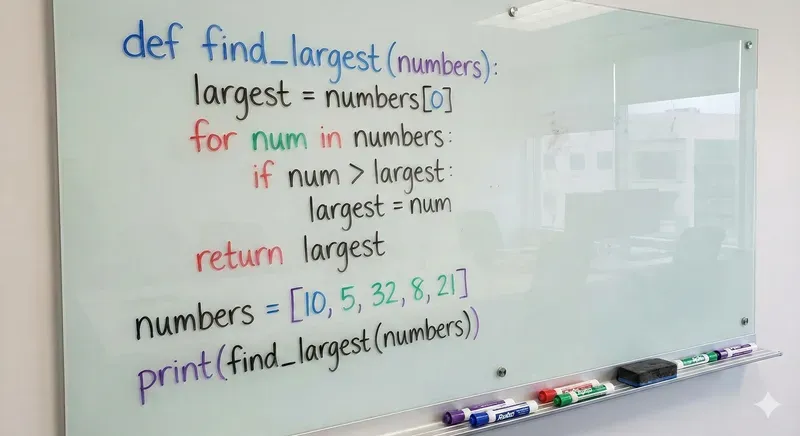 def find_largest(numbers):
    largest = numbers[0]
    for num in numbers:
        if num > largest:
            largest = num
    return largest
numbers = [10, 5, 32, 8, 21]
print(find_largest(numbers))